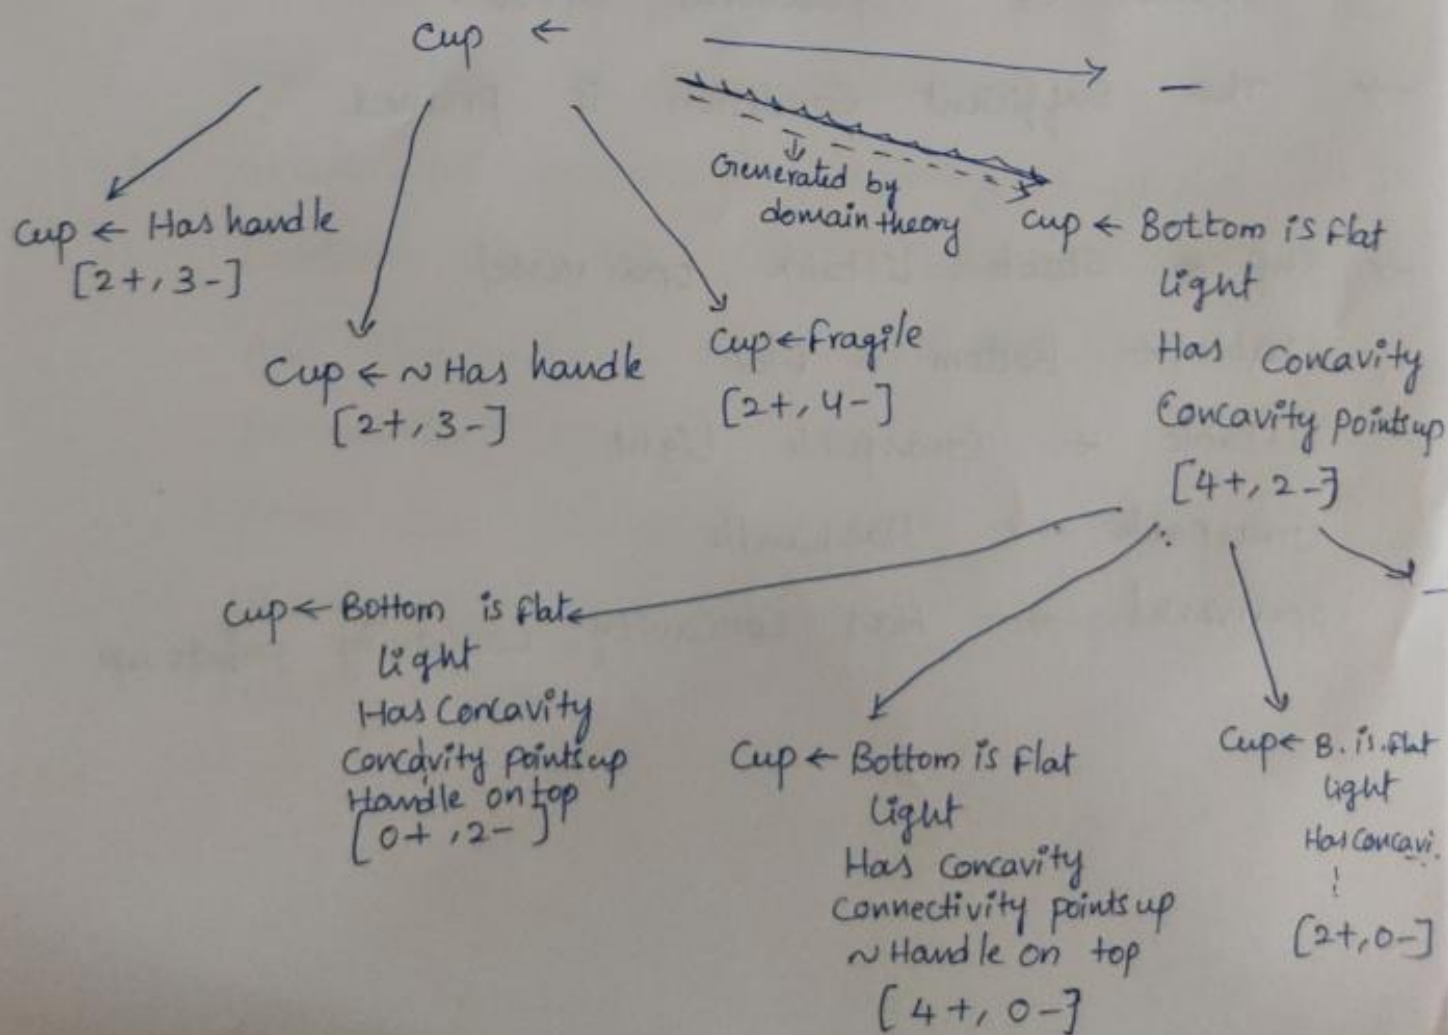 Cup ←
—
Generated by
domain theory
Cup ← Has handle
[2+, 3-]
Cup ← ~ Has handle
[2+, 3-]
Cup ← Fragile
[2+, 4-]
Cup ← Bottom is flat
light
Has Concavity
Concavity points up
[4+, 2-]
Cup ← Bottom is flat
light
Has Concavity
Concavity points up
Handle on top
[0+, 2-]
Cup ← Bottom is flat
light
Has Concavity
Connectivity points up
~ Handle on top
[4+, 0-]
Cup ← B. is. flat
light
Has concavi.
[2+, 0-]